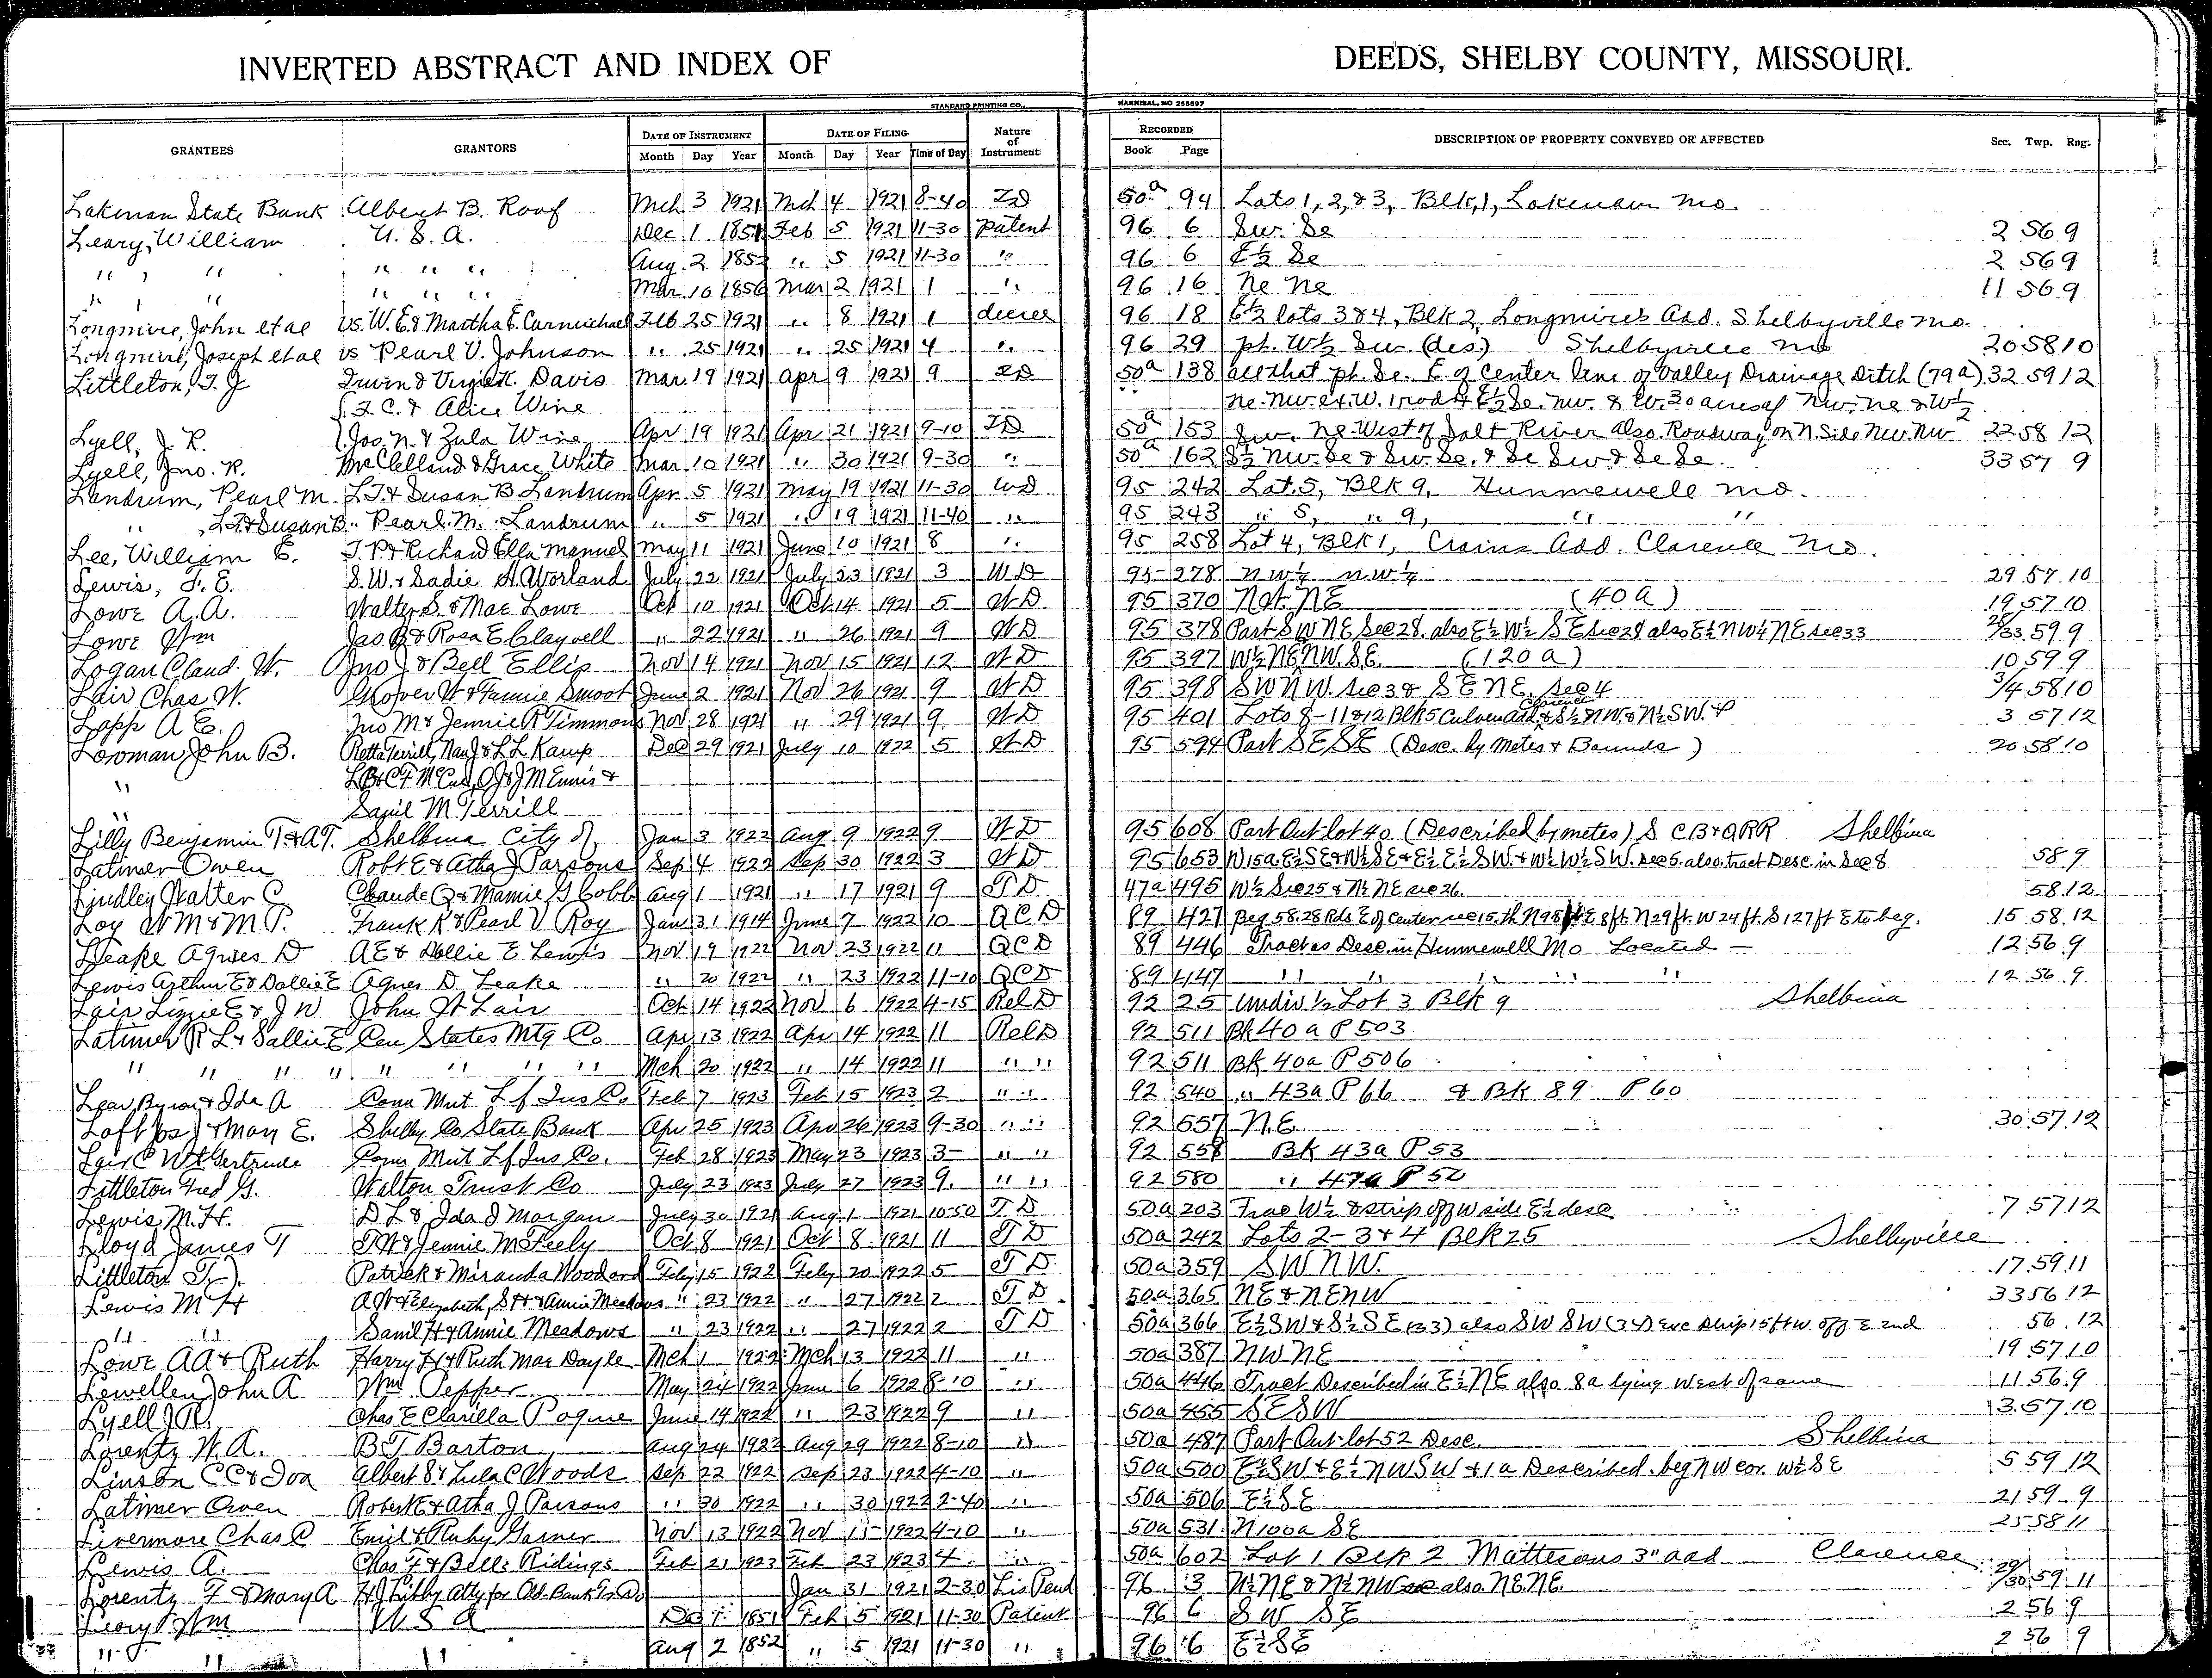 INVERTED ABSTRACT AND INDEX OF DEEDS, SHELBY COUNTY, MISSOURI.
STANDARD PRINTING CO., HANNIBAL, MO 256697
GRANTEES GRANTORS DATE OF INSTRUMENT DATE OF FILING Nature of Instrument RECORDED DESCRIPTION OF PROPERTY CONVEYED OR AFFECTED Sec. Twp. Rng.
Month Day Year Month Day Year Time of Day Book Page
Lakenan State Bank Albert B. Roof Mch 3 1921 Mch 4 1921 8-40 50a 94 Lots 1, 2, & 3, Blk, 1, Lakenan Mo.
Leary, William U. S. A. Dec 1 1851 Feb 5 1921 11-30 Patent 96 6 Sw. Se 2 56 9
" " " " " Aug 2 1852 " 5 1921 11-30 " 96 6 E½ Se 2 56 9
" " " " " Mar 10 1856 Mar 2 1921 1 " 96 16 Ne Ne 11 56 9
Longmire, John et al vs. W. E & Martha E. Carmichael Feb 25 1921 " 8 1921 1 decree 96 18 E½ lots 3 & 4, Blk 2, Longmire's Add. Shelbyville Mo.
Longmire, Joseph et al vs Pearl V. Johnson " 25 1921 " 25 1921 4 " 96 29 pt. W½ Sw. (des.) Shelbyville Mo 20 58 10
Littleton, T. J Irvin & Davis Mar 19 1921 Apr 9 1921 9 50a 138 all that pt. Se. E. of Center line of Valley Drainage Ditch (79a) 32 59 12
C. & Alice Wine Ne. Nw. W. 1 rod E½ Se. Nw. & W. 30 acres of Nw. Ne & W½
Lyell, J. R. Jos. N. & Zula Wine Apr 19 1921 Apr 21 1921 9-10 50a 153 Sw. Ne West of Salt River also Roadway on N. Side Nw. Nw 22 58 12
Lyell, Jno. R. McClelland & Grace White Mar 10 1921 " 30 1921 9-30 " 50a 162 S½ Nw. Se & Sw. Se. & Se Sw & Se Se. 33 57 9
Landrum, Pearl M. L. T. & Susan B Landrum Apr 5 1921 May 19 1921 11-30 WD 95 242 Lot 5, Blk 9, Hunnewell Mo.
" , L. T. & Susan B. Pearl. M. Landrum " 5 1921 " 19 1921 11-40 " 95 243 " 5, " 9, " "
Lee, William E. J. P. & Richard Ella Manuel May 11 1921 June 10 1921 8 " 95 258 Lot 4, Blk 1, Crains Add. Clarence Mo.
Lewis, F. E. S. W. & Sadie A. Worland July 22 1921 July 23 1921 3 WD 95 278 NW¼ NW¼ 29 57 10
Lowe A. A. Walter S. & Mae Lowe Oct 10 1921 Oct 14 1921 5 WD 95 370 NE (40 a) 19 57 10
Lowe Wm Jas B & Rosa E Claywell " 22 1921 " 26 1921 9 WD 95 378 Part SW NE Sec 28. also E½ W½ SE sec 28 also E½ NW¼ NE sec 33 28/33 59 9
Logan Claud. W. Jno J & Bell Ellis Nov 14 1921 Nov 15 1921 12 WD 95 397 W½ NE, NW. SE. (120 a) 10 59 9
Lair Chas W. Grover W & Fannie Smoot June 2 1921 Nov 26 1921 9 WD 95 398 SW NW. sec 3 & SE NE, Sec 4 3/4 58 10
Lapp A E. Jno M & Jennie R Timmons Nov 28 1921 " 29 1921 9 WD 95 401 Lots 8-11 & 12 Blk 5 Culver Add Clarence & S½ NW & N½ SW. & 3 57 12
Lowman, John B. Retta Terrill, Nan J & L L Kamp Dec 29 1921 July 10 1922 5 WD 95 594 Part SE SE (Desc. by Metes & Bounds) 20 58 10
" L B & C F J & J M Ennis &
" Saml M Terrill
Lilly Benjamin T. & A T. Shelbina City of Jan 3 1922 Aug 9 1922 9 WD 95 608 Part Out-lot 40 (Described by metes) S C B & Q RR Shelbina
Latimer Owen Robt E & Atha J Parsons Sep 4 1922 Sep 30 1922 3 WD 95 653 W15a E½ SE & W½ SE & E½ E½ SW. & W½ W½ SW. sec 5. also tract Desc. in Sec 8 58 9
Lindley Walter C Claude Q & Mamie G Cobb Aug 1 1921 " 17 1921 9 TD 47a 495 W½ Sec 25 & N½ NE sec 26. 58 12
Loy W M & M P. Frank R & Pearl V Roy Jan 31 1914 June 7 1922 10 QCD 89 427 Beg 58.28 Rds E of Center sec 15. th N 98 ft E 8 ft N 29 ft. W 24 ft. S 127 ft E to beg. 15 58 12
Leake Agnes D A E & Dollie E Lewis Nov 19 1922 Nov 23 1922 11 QCD 89 446 Tract as Desc. in Hunnewell Mo Located — 12 56 9
Lewis Arthur E & Dollie E Agnes D Leake " 20 1922 " 23 1922 11-10 QCD 89 447 " " " " " 12 56 9
Lair Lizzie E & J W John W Lair Oct 14 1922 Nov 6 1922 4-15 Rel D 92 25 Undiv ½ Lot 3 Blk 9 Shelbina
Latimer R L & Sallie E Cen States Mtg Co Apr 13 1922 Apr 14 1922 11 Rel D 92 511 Bk 40 a P 503
" " " " " " " " Mch 20 1922 " 14 1922 11 " " 92 511 Bk 40a P 506
Lear Byron & Ida A Conn Mut Lf Ins Co Feb 7 1923 Feb 15 1923 2 " " 92 540 " 43a P 66 & Bk 89 P 60
Loft J & May E. Shelby Co State Bank Apr 25 1923 Apr 26 1923 9-30 " " 92 557 N. E 30 57 12
Lair C W & Gertrude Conn Mut Lf Ins Co. Feb 28 1923 May 23 1923 3- " " 92 558 Bk 43a P 53
Littleton Fred G. Walton Trust Co July 23 1923 July 27 1923 9. " " 92 580 " 47a P 52
Lewis M. H. D L & Ida J Morgan July 30 1921 Aug 1 1921 10-50 TD 50a 203 Frac W½ & strip off W side E½ desc 7 57 12
Lloyd James T J W & Jennie McNeely Oct 8 1921 Oct 8 1921 11 TD 50a 242 Lots 2-3 & 4 Blk 25 Shelbyville
Littleton T. J. Patrick & Miranda Woodard Feby 15 1922 Feby 20 1922 5 TD 50a 359 SW NW. 17 59 11
Lewis M H A W & Elizabeth, S H & Annie Meadows " 23 1922 " 27 1922 2 TD 50a 365 NE & NE NW 33 56 12
" " Saml H & Annie Meadows " 23 1922 " 27 1922 2 TD 50a 366 E½ SW & S½ SE (33) also SW SW (34) exc strip 15 ft W off E end 56 12
Lowe A A & Ruth Harry H & Ruth Mae Dayle Mch 1 1922 Mch 13 1922 11 " 50a 387 NW NE 19 57 10
Lewellen John A Wm Pepper May 24 1922 June 6 1922 8-10 " 50a 446 Tract Described in E½ NE also 8a lying West of same 11 56 9
Lyell J R. Chas E Clarilla Pogue June 14 1922 " 23 1922 9 " 50a 455 SE SW 13 57 10
Lorentz W. A. B T Barton Aug 24 1922 Aug 29 1922 8-10 " 50a 487 Part Out-lot 52 Desc. Shelbina
Linson C C & Iva Albert S & Lula C Woods Sep 22 1922 Sep 23 1922 4-10 " 50a 500 E½ SW & E½ NW SW & 1a Described. beg NW cor. W½ SE 5 59 12
Latimer Owen Robert E & Atha J Parsons " 30 1922 " 30 1922 2-40 " 50a 506 E½ SE 21 59 9
Livermore Chas C Emil & Ruby Garner Nov 13 1922 Nov 15 1922 4-10 " 50a 531 N 100a SE 25 58 11
Lewis A. Chas F & Belle Ridings Feb 21 1923 Feb 23 1923 4 " 50a 602 Lot 1 Blk 2 Mattesons 3" add Clarence
Lorentz F & Mary A H J Libby Atty for Jan 31 1921 2-30 Lis Pend 96 3 N½ NE & N½ NW also NE NE. 29/30 59 11
Leary Wm U S A Dec 1 1851 Feb 5 1921 11-30 Patent 96 6 SW SE 2 56 9
" " " Aug 2 1852 " 5 1921 11-30 " 96 6 E½ SE 2 56 9